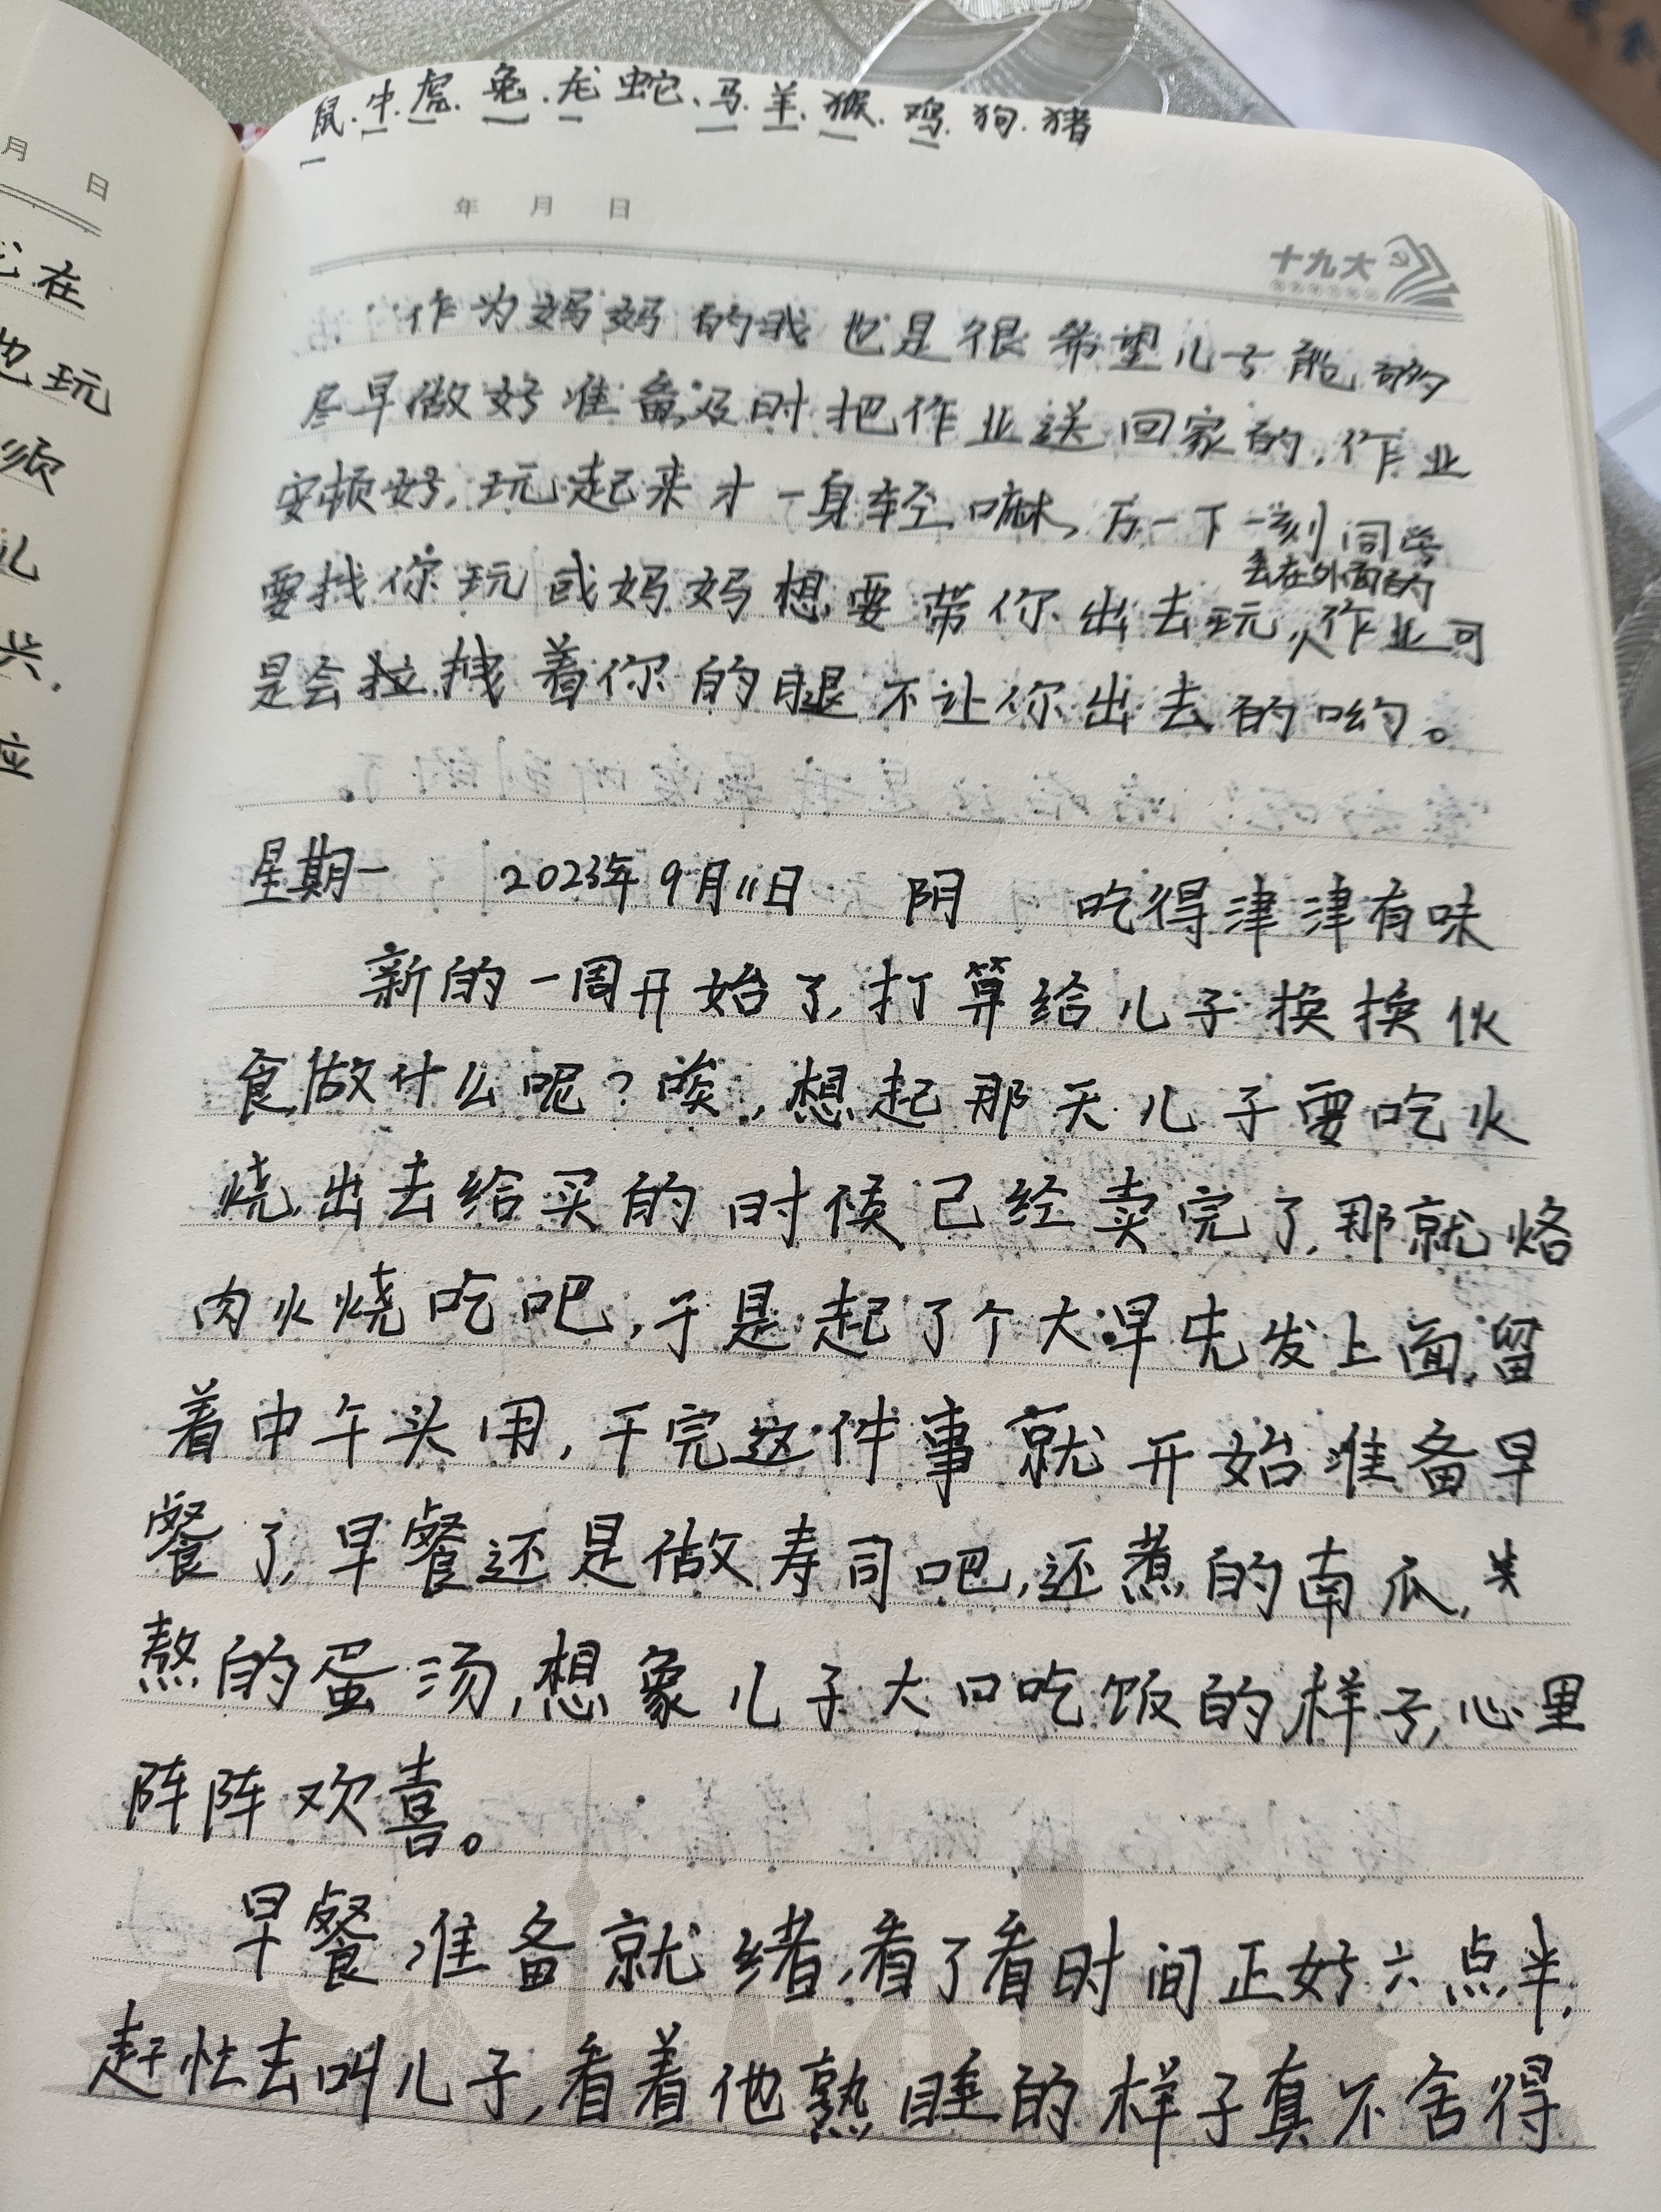 鼠.牛.虎.兔.龙 蛇、马.羊.猴.鸡.狗.猪
月 日
年 月 日
十九大
在
也玩
须
儿
兴.
应
作为妈妈的我也是很希望儿子能够
尽早做好准备及时把作业送回家的,作业
安顿好,玩起来才一身轻嘛,万一下一刻同学
要找你玩或妈妈想要带你出去玩,丢在外面的作业可
是会拉拽着你的腿不让你出去的哟。
星期一 2023年9月11日 阴 吃得津津有味
新的一周开始了,打算给儿子换换伙
食,做什么呢?唉,想起那天儿子要吃火
烧,出去给买的时候己经卖完了,那就烙
肉火烧吃吧,于是起了个大早先发上面,留
着中午头用,干完这件事就开始准备早
餐了,早餐还是做寿司吧,还煮的南瓜,
熬的蛋汤,想象儿子大口吃饭的样子,心里
阵阵欢喜。
早餐准备就绪,看了看时间正好六点半,
赶忙去叫儿子,看着他熟睡的样子真不舍得